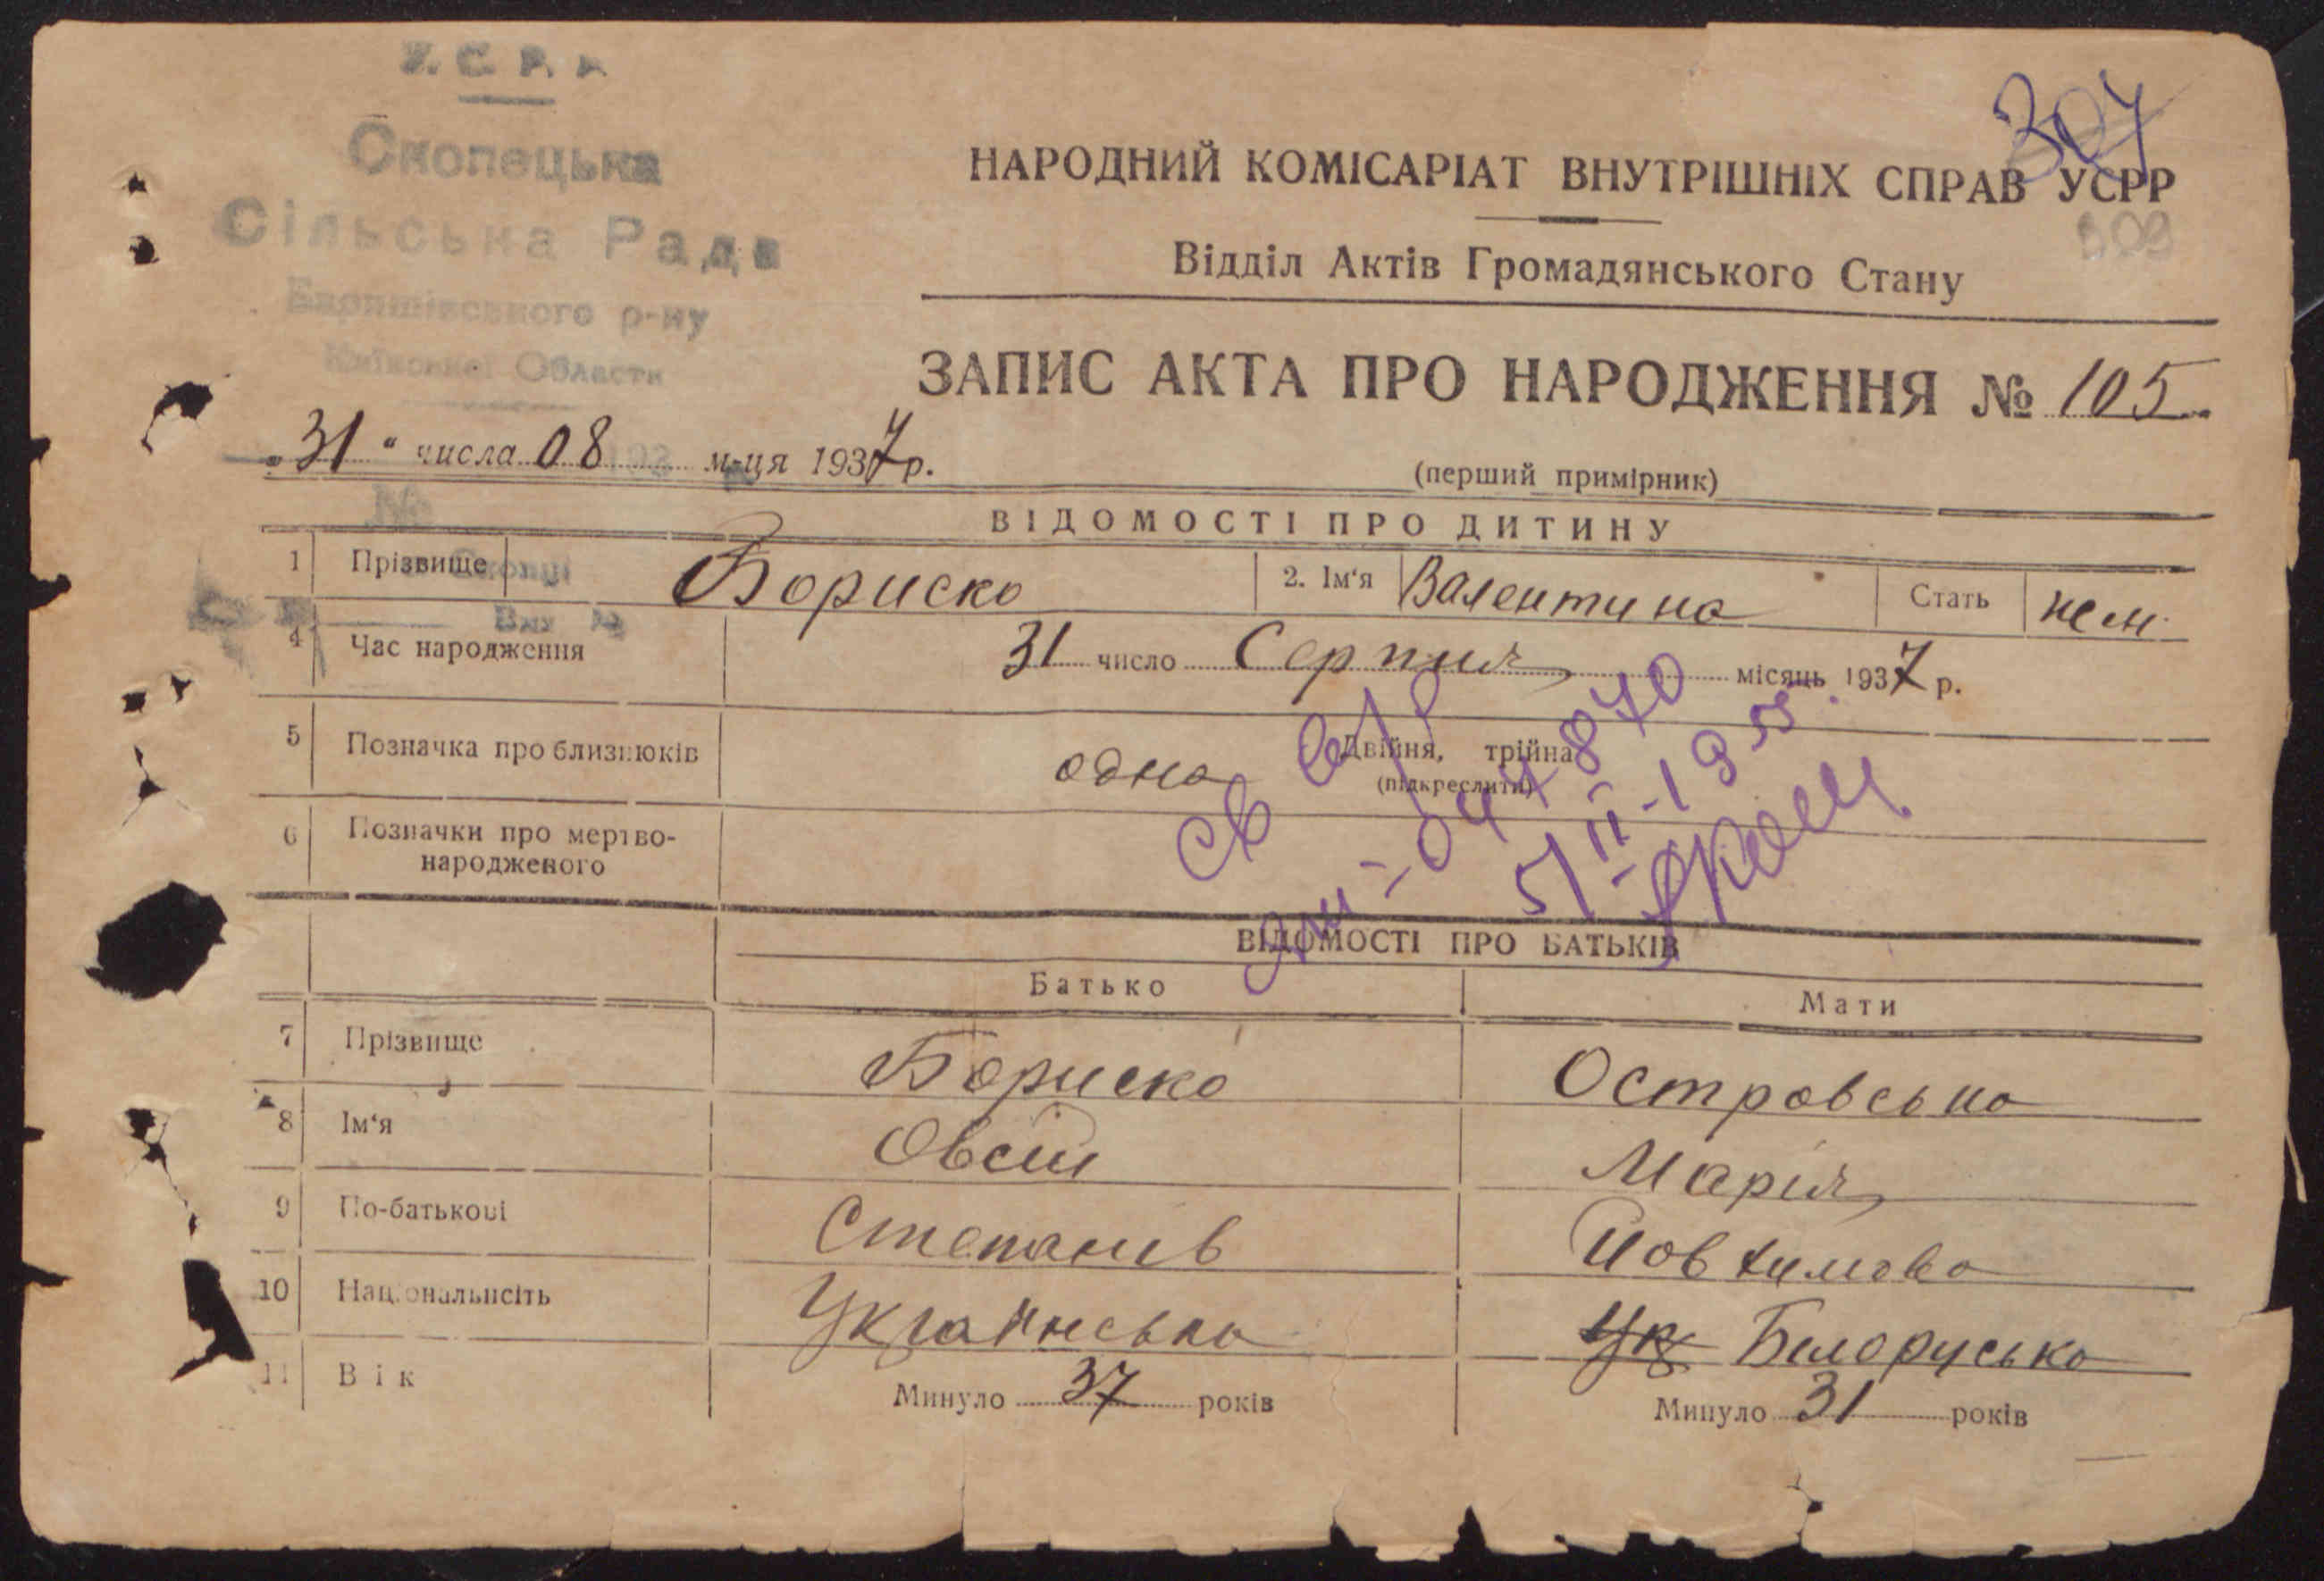 У.С.Р.Р.
Скопецька
Сільська Рада
Баришівського р-ну
Київської Области
307
309
НАРОДНИЙ КОМІСАРІАТ ВНУТРІШНІХ СПРАВ УСРР
Відділ Актів Громадянського Стану
ЗАПИС АКТА ПРО НАРОДЖЕННЯ № 105
„31" числа 08 м-ця 1937 р.
(перший примірник)
ВІДОМОСТІ ПРО ДИТИНУ
1 Прізвище Бориско 2. Ім‘я Валентина Стать
4 Час народження 31 число Серпня місяць 1937 р.
5 Позначка про близнюків одна Двійня, трійна
(підкреслити)
6 Позначки про мертво-
народженого
044870
5/II-1955.
ВІДОМОСТІ ПРО БАТЬКІВ
Батько Мати
7 Прізвище Бориско Островська
8 Ім‘я Овсій Марія
9 По-батькові Степанів
10 Національнсіть Українська Ук Білоруська
11 Вік Минуло 37 років Минуло 31 років